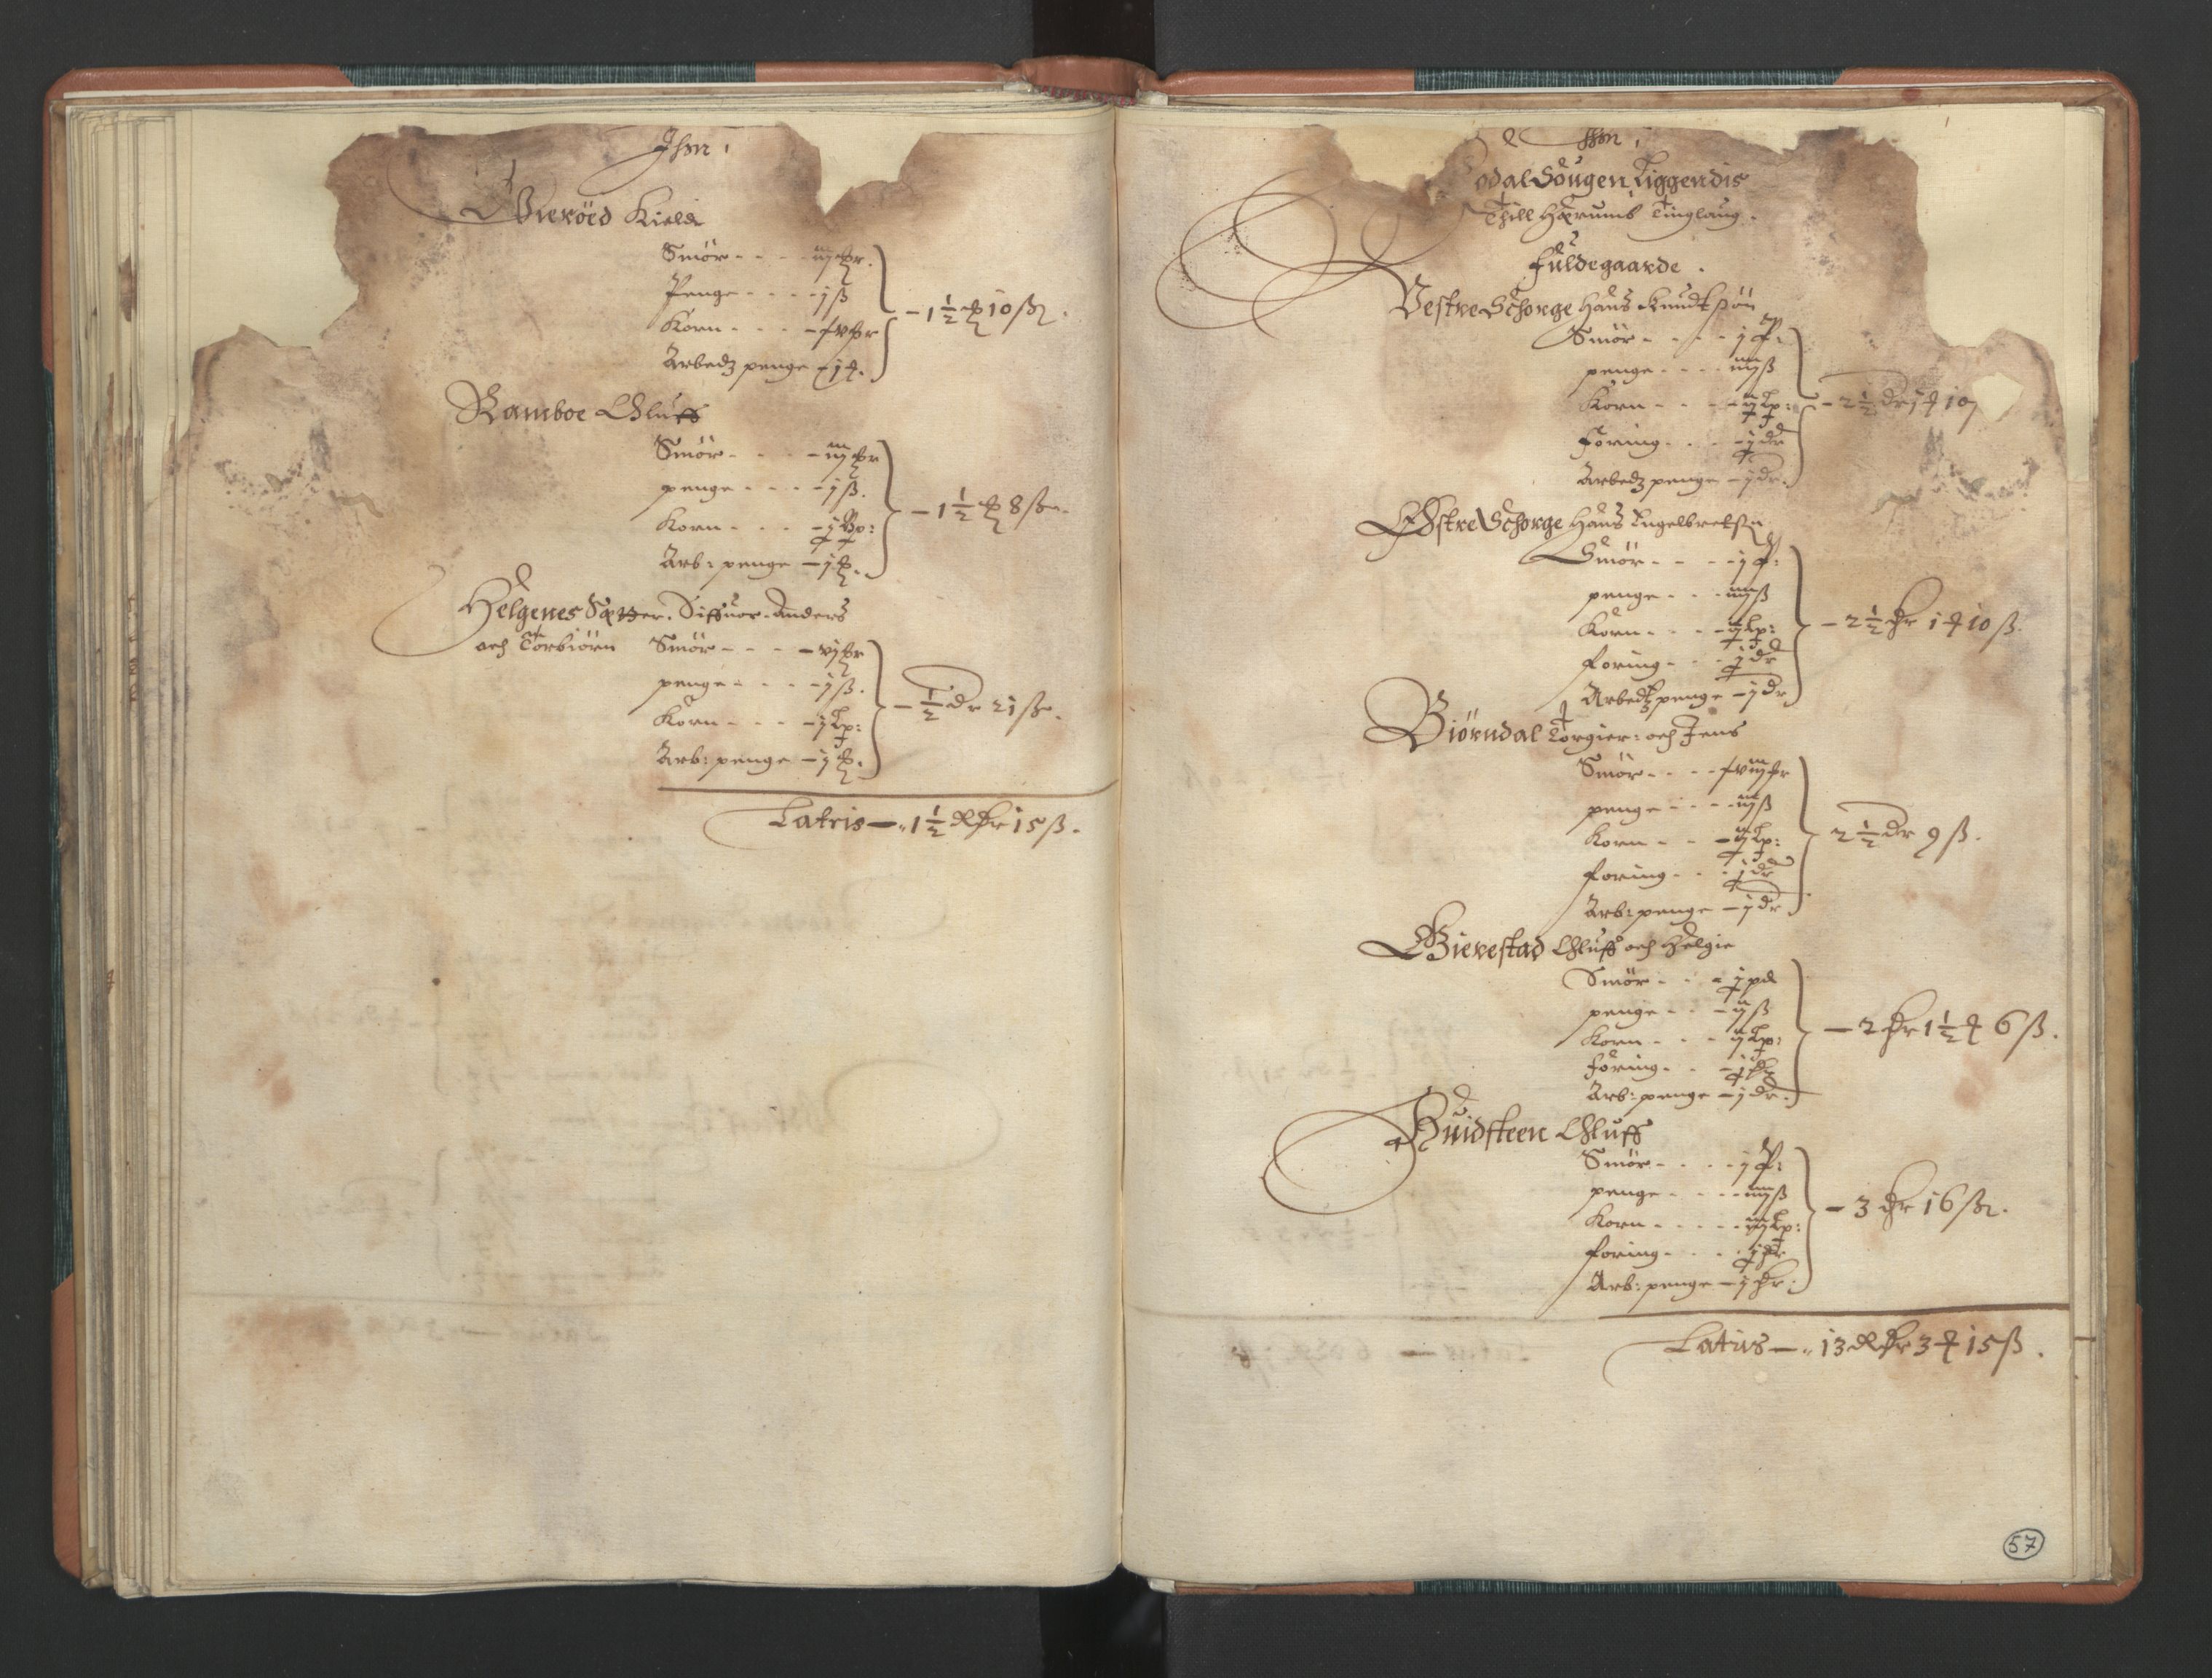 Ihm:
Bierøed Kield
Smör - - - - iij mr.
Penge - - - - j ß
Korn - - - - fv mr
Arbedz penge - j ort.
- 1 1/2 mk 10 ß.
Ramboe Oluff
Smör - - - iiij mr
penge - - - - j ß.
Korn - - - - j Bp:
Arb: penge - j mk.
- 1 1/2 mk 8 ß.
Helgenes Sætter. Siffuor. Anders
och Torbiörn Smör - - - - vj mr
penge - - - - j ß.
Korn - - - - j Lp:
Arb: penge - j mk.
- 1/2 dr 21 ß.
Latris - 1 1/2 Rdr 15 ß.
Ihm:
odal Sougen Liggendis
Thill Hærumb Tinglaug.
Fuldegaarde.
Vestre Schorge Hans Knudtsøn
Smör - - - - j P:
penge - - - - iiij ß
Korn - - - - ij Lp:
Foring - - - j dr
Arbedz penge - j dr.
- 2 1/2 dr j ort 10
Østre Schorge Hans Engelbretsn
Smör - - - - j P:
penge - - - iiij ß
Korn - - - - ij Lp:
foring - - - j dr
Arbedtz penge - j dr
- 2 1/2 dr 1 ort 10 ß.
Biörndal Torgier: och Jens
Smör - - - - fviij mr
penge - - - - iij ß
Korn - - - ij Lp:
foring - - - j dr
Arb: penge - j dr
2 1/2 dr 9 ß.
Bierestad Oluff och Helgie
Smör - - - j pd
penge - - - ij ß
Korn - - - ij Lp:
Foring - - - j
Arb: penge - j dr.
- 2 dr 1 1/2 ort 6 ß.
Huidsteen Oluff
Smör - - - - j P:
penge - - - - iiij ß
Korn - - - - - iij Lp:
foring - - - - j dr
Arb: penge - j dr.
- 3 dr 16 ß.
Latus - 13 Rdr 3 ort 15 ß.
57